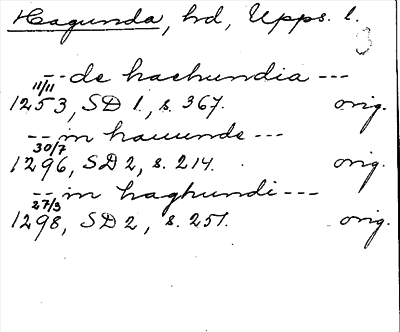 Hagunda, hd, Upps. l.
3
-- de hachundia ---
11/11
1253, SD 1, s. 367. orig.
-- in hauunde ---
30/7
1296, SD 2, s. 214. orig.
-- in haghundi ---
27/3
1298, SD 2, s. 251. orig.